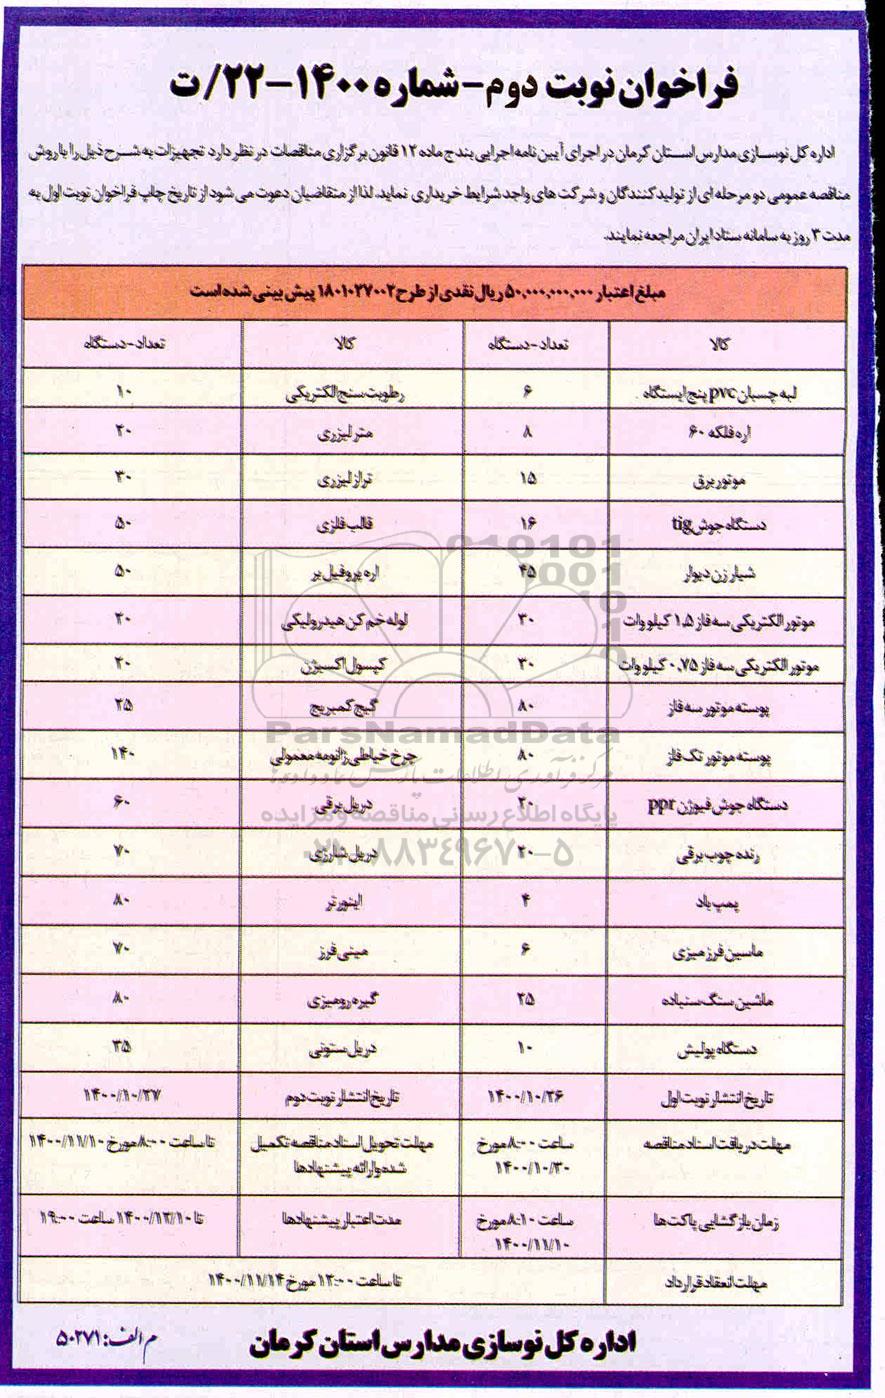 فراخوان نوبت دوم - شماره ۱۴۰۰-۲۲/ت
اداره کل نوسازی مدارس استان کرمان در اجرای آیین نامه اجرایی بند ج ماده ۱۲ قانون برگزاری مناقصات در نظر دارد تجهیزات به شرح ذیل را با روش
مناقصه عمومی دو مرحله ای از تولیدکنندگان و شرکت های واجد شرایط خریداری نماید. لذا از متقاضیان دعوت می شود از تاریخ چاپ فراخوان نوبت اول به
مدت ۳ روز به سامانه ستاد ایران مراجعه نمایند.
مبلغ اعتبار ۵۰,۰۰۰,۰۰۰,۰۰۰ ریال نقدی از طرح ۱۸۰۱۰۲۷۰۰۲ پیش بینی شده است
کالا تعداد-دستگاه کالا تعداد-دستگاه
لبه چسبان pvc پنج ایستگاه ۶ رطوبت سنج الکتریکی ۱۰
اره فلکه ۶۰ ۸ متر لیزری ۲۰
موتور برق ۱۵ تراز لیزری ۳۰
دستگاه جوش tig ۱۶ قالب فلزی ۵۰
شیار زن دیوار ۴۵ اره پروفیل بر ۵۰
موتور الکتریکی سه فاز ۱.۵ کیلو وات ۳۰ لوله خم کن هیدرولیکی ۲۰
موتور الکتریکی سه فاز ۰.۷۵ کیلو وات ۳۰ کپسول اکسیژن ۲۰
پوسته موتور سه فاز ۸۰ گیج کمبریج ۲۵
پوسته موتور تک فاز ۸۰ چرخ خیاطی ژانومه معمولی ۱۴۰
دستگاه جوش فیوژن ppr ۲۰ دریل برقی ۶۰
رنده چوب برقی ۲۰ دریل شارژی ۷۰
پمپ باد ۴ اینورتر ۸۰
ماسین فرز میزی ۶ مینی فرز ۷۰
ماشین سنگ سنباده ۲۵ گیره رومیزی ۸۰
دستگاه پولیش ۱۰ دریل ستونی ۳۵
تاریخ انتشار نوبت اول ۱۴۰۰/۱۰/۲۶ تاریخ انتشار نوبت دوم ۱۴۰۰/۱۰/۲۷
مهلت دریافت اسناد مناقصه ساعت ۸:۰۰ مورخ مهلت تحویل اسناد مناقصه تکمیل تا ساعت ۸:۰۰ مورخ ۱۴۰۰/۱۱/۱۰
۱۴۰۰/۱۰/۳۰ شده و ارائه پیشنهادها
زمان بازگشایی پاکت ها ساعت ۸:۱۰ مورخ مدت اعتبار پیشنهادها تا ۱۴۰۰/۱۲/۱۰ ساعت ۱۹:۰۰
۱۴۰۰/۱۱/۱۰
مهلت انعقاد قرارداد تا ساعت ۱۲:۰۰ مورخ ۱۴۰۰/۱۱/۱۴
اداره کل نوسازی مدارس استان کرمان
م الف: ۵۰۲۷۱
ParsNamadData
مرکز فرآوری اطلاعات پارس نماد داده ها
پایگاه اطلاع رسانی مناقصه و مزایده
۰۲۱-۸۸۳۴۹۶۷۰-۵